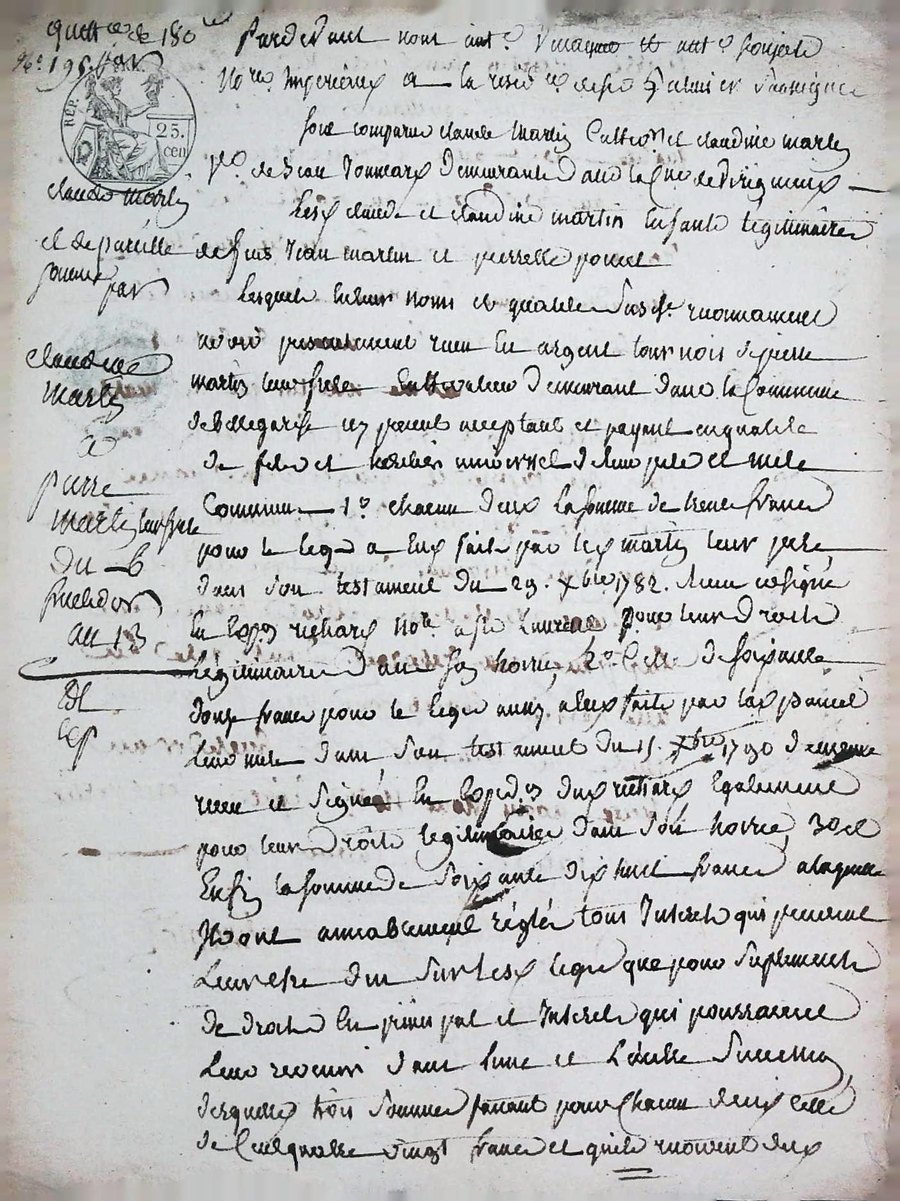 quittce de 180
N° 195 par
REP. FRA.
25.
cen
claude martin
et de pareille
somme
par
claudine
martin
a
pierre
martin leur frere
du 6
fructidor
an 13
Pardevant nous ant.
Nores Imperiaux a la residce de St Galmier soussignés
sont comparus claude martin Cultivr et claudine martin
Ve. de Jean demeurants dans la Cne de Viriqneux
Lesx claude et claudine martin Enfants légitimaires
defuns Jean martin et pierrette poncet
Lesquels En leurs noms et qualités susde reconnaissent
avoir presentement recu En argent tournois de pierre
martin leur frere Cultivateur demeurant dans la Commune
de Bellegarde icy present acceptant et payant en qualité
de fils et héritier universel de leurs pere et mere
Communs 1° chacun deux la somme de trente francs
pour le legs a Eux faits par lex martin leur pere
dans son testament du 29. Xbre 1782. recu et signé
En Expon richard Note a St Laurent pour leurs Droits
légitimaires dans son hoirie, 2° Celle de soixante
douze francs pour le legs aussy a Eux faits par lax poncet
leur mere dans son testament du 15 Xbre 1790 de meme
recu et signé En Expedon dux richard Egalement
pour leurs droits legitimaires dans son hoirie, 3° et
Enfin la somme de soixante dix huit francs a laquelle
Ils ont amiablement réglés tous Interets qui peuvent
Leur etre dus sur lesx legs que pour suplements
de droits En principal et Interets qui pourraient
Leurs revenir dans l'une et L'autre Succession
desquelles trois sommes faisant pour chacun deux celle
de Cent quatre vingt francs et quils recoivent deux